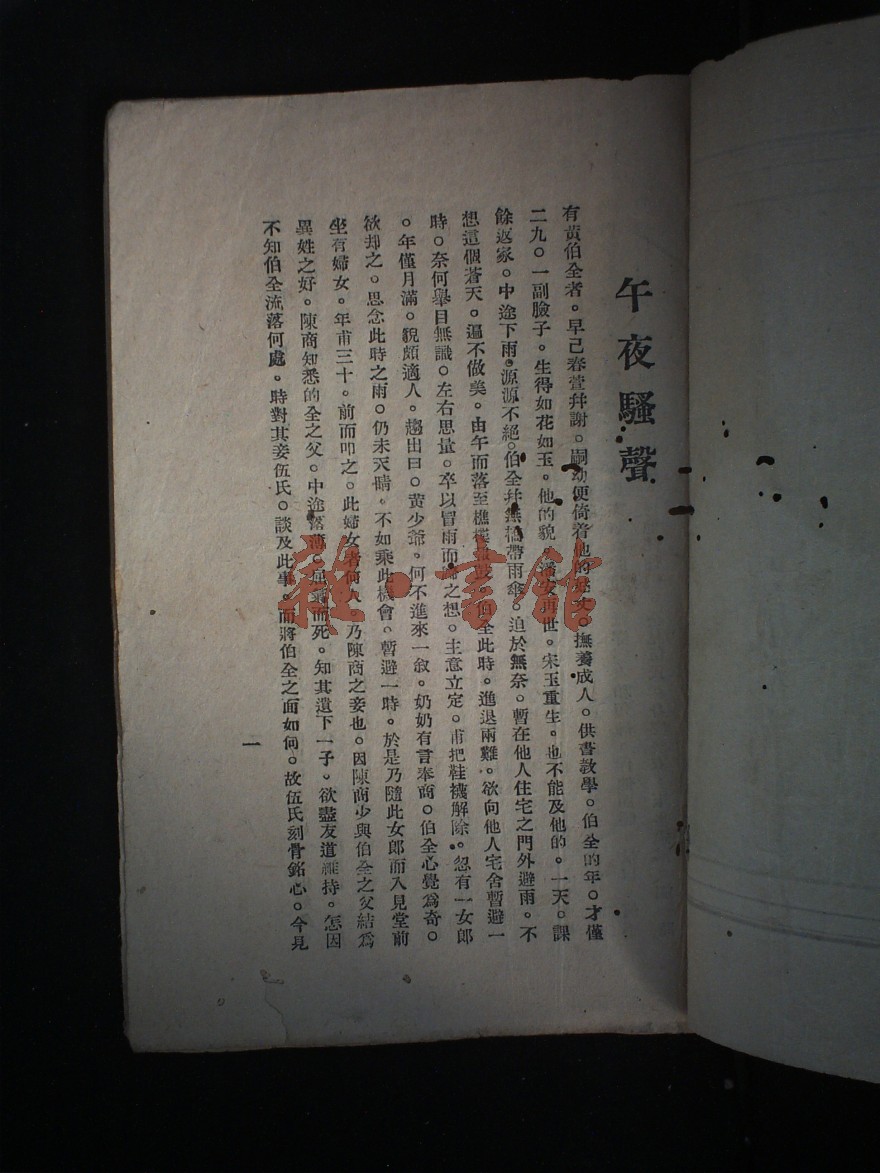 午夜騷聲
有黃伯全者。早已春萱幷謝。嗣幼便倚着他的 撫養成人。供書敎學。伯全的年。才僅
二九。一副臉子。生得如花如玉。他的貌。潘安再世。宋玉重生。也不能及他的。一天。課
餘返家。中途下雨。源源不絕。伯全幷無攜帶雨傘。迫於無奈。暫在他人住宅之門外避雨。不
想這個蒼天。逼不做美。由午而落至樵樓 伯全此時。進退兩難。欲向他人宅舍暫避一
時。奈何舉目無識。左右思量。卒以冒雨而 之想。主意立定。甫把鞋襪解除。忽有一女郎
。年僅月滿。貌頗適人。趨出曰。黃少爺。何不進來一敘。奶奶有言奉商。伯全心覺爲奇。
欲却之。思念此時之雨。仍未天晴。不如乘此機會。暫避一時。於是乃隨此女郎而入見堂前
坐有婦女。年甫三十。前而叩之。此婦女者何人乃陳商之妾也。因陳商少與伯全之父結爲
異姓之好。陳商知悉的全之父。中途 而死。知其遺下一子。欲盡友道維持。怎因
不知伯全流落何處。時對其妾伍氏。談及此事。而將伯全之面如何。故伍氏刻骨銘心。今見
一
雜·書館